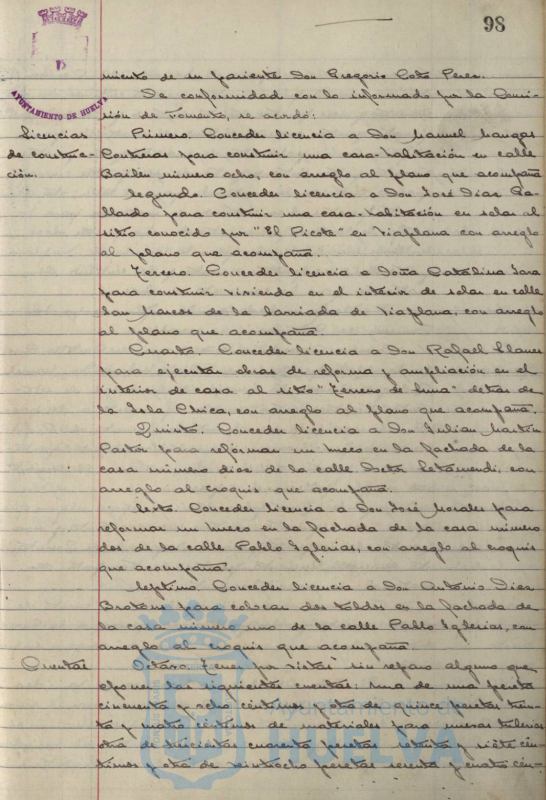 98
AYUNTAMIENTO DE HUELVA
miento de su pariente Don Gregorio Coto Perez.
De conformidad con lo informado por la Comi-
sión de Fomento, se acordó:
Licencias
de construc-
ción.
Primero. Conceder licencia a Don Manuel Mangas
Contreras para construir una casa-habitación en calle
Bailén número ocho, con arreglo al plano que acompaña
Segundo. Conceder licencia a Don José Diaz Ga-
llardo para construir una casa-habitación en solar al
sitio conocido por "El Picote" en Viaplana con arreglo
al plano que acompaña.
Tercero. Conceder licencia a Doña Catalina Jara
para construir vivienda en el interior de solar en calle
San Marcos de la barriada de Viaplana, con arreglo
al plano que acompaña.
Cuarto. Conceder licencia a Don Rafael Llanes
para ejecutar obras de reforma y ampliación en el
interior de casa al sitio "Terreno de" detrás de
la Isla Chica, con arreglo al plano que acompaña.
Quinto. Conceder licencia a Don Julian Martín
Pastor para reformar un hueco en la fachada de la
casa número dos de la calle Letamendi, con
arreglo al croquis que acompaña.
Sexto. Conceder licencia a Don José Morales para
reformar un hueco en la fachada de la casa número
dos de la calle Pablo Iglesias, con arreglo al croquis
que acompaña.
Septimo. Conceder licencia a Don Antonio Diaz
para colocar dos toldos en la fachada de
la casa número uno de la calle Pablo Iglesias, con
arreglo al croquis que acompaña.
Cuentas
Octavo. Tener por vistas sin reparo alguno que
oponer las siguientes cuentas: una de una peseta
cincuenta y ocho céntimos y otra de quince pesetas trein-
ta y cuatro céntimos de materiales para nuevas tuberías
otra de trescientas cuarenta pesetas setenta y siete cén-
timos y otra de veintiocho pesetas sesenta y cuatro cén-
Ayuntamiento de
HUELVA